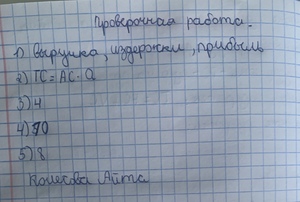 Проверочная работа.
1) выручка, издержки, прибыль
2) TC = AC · Q
3) 4
4) 70
5) 8
Колесова Айта